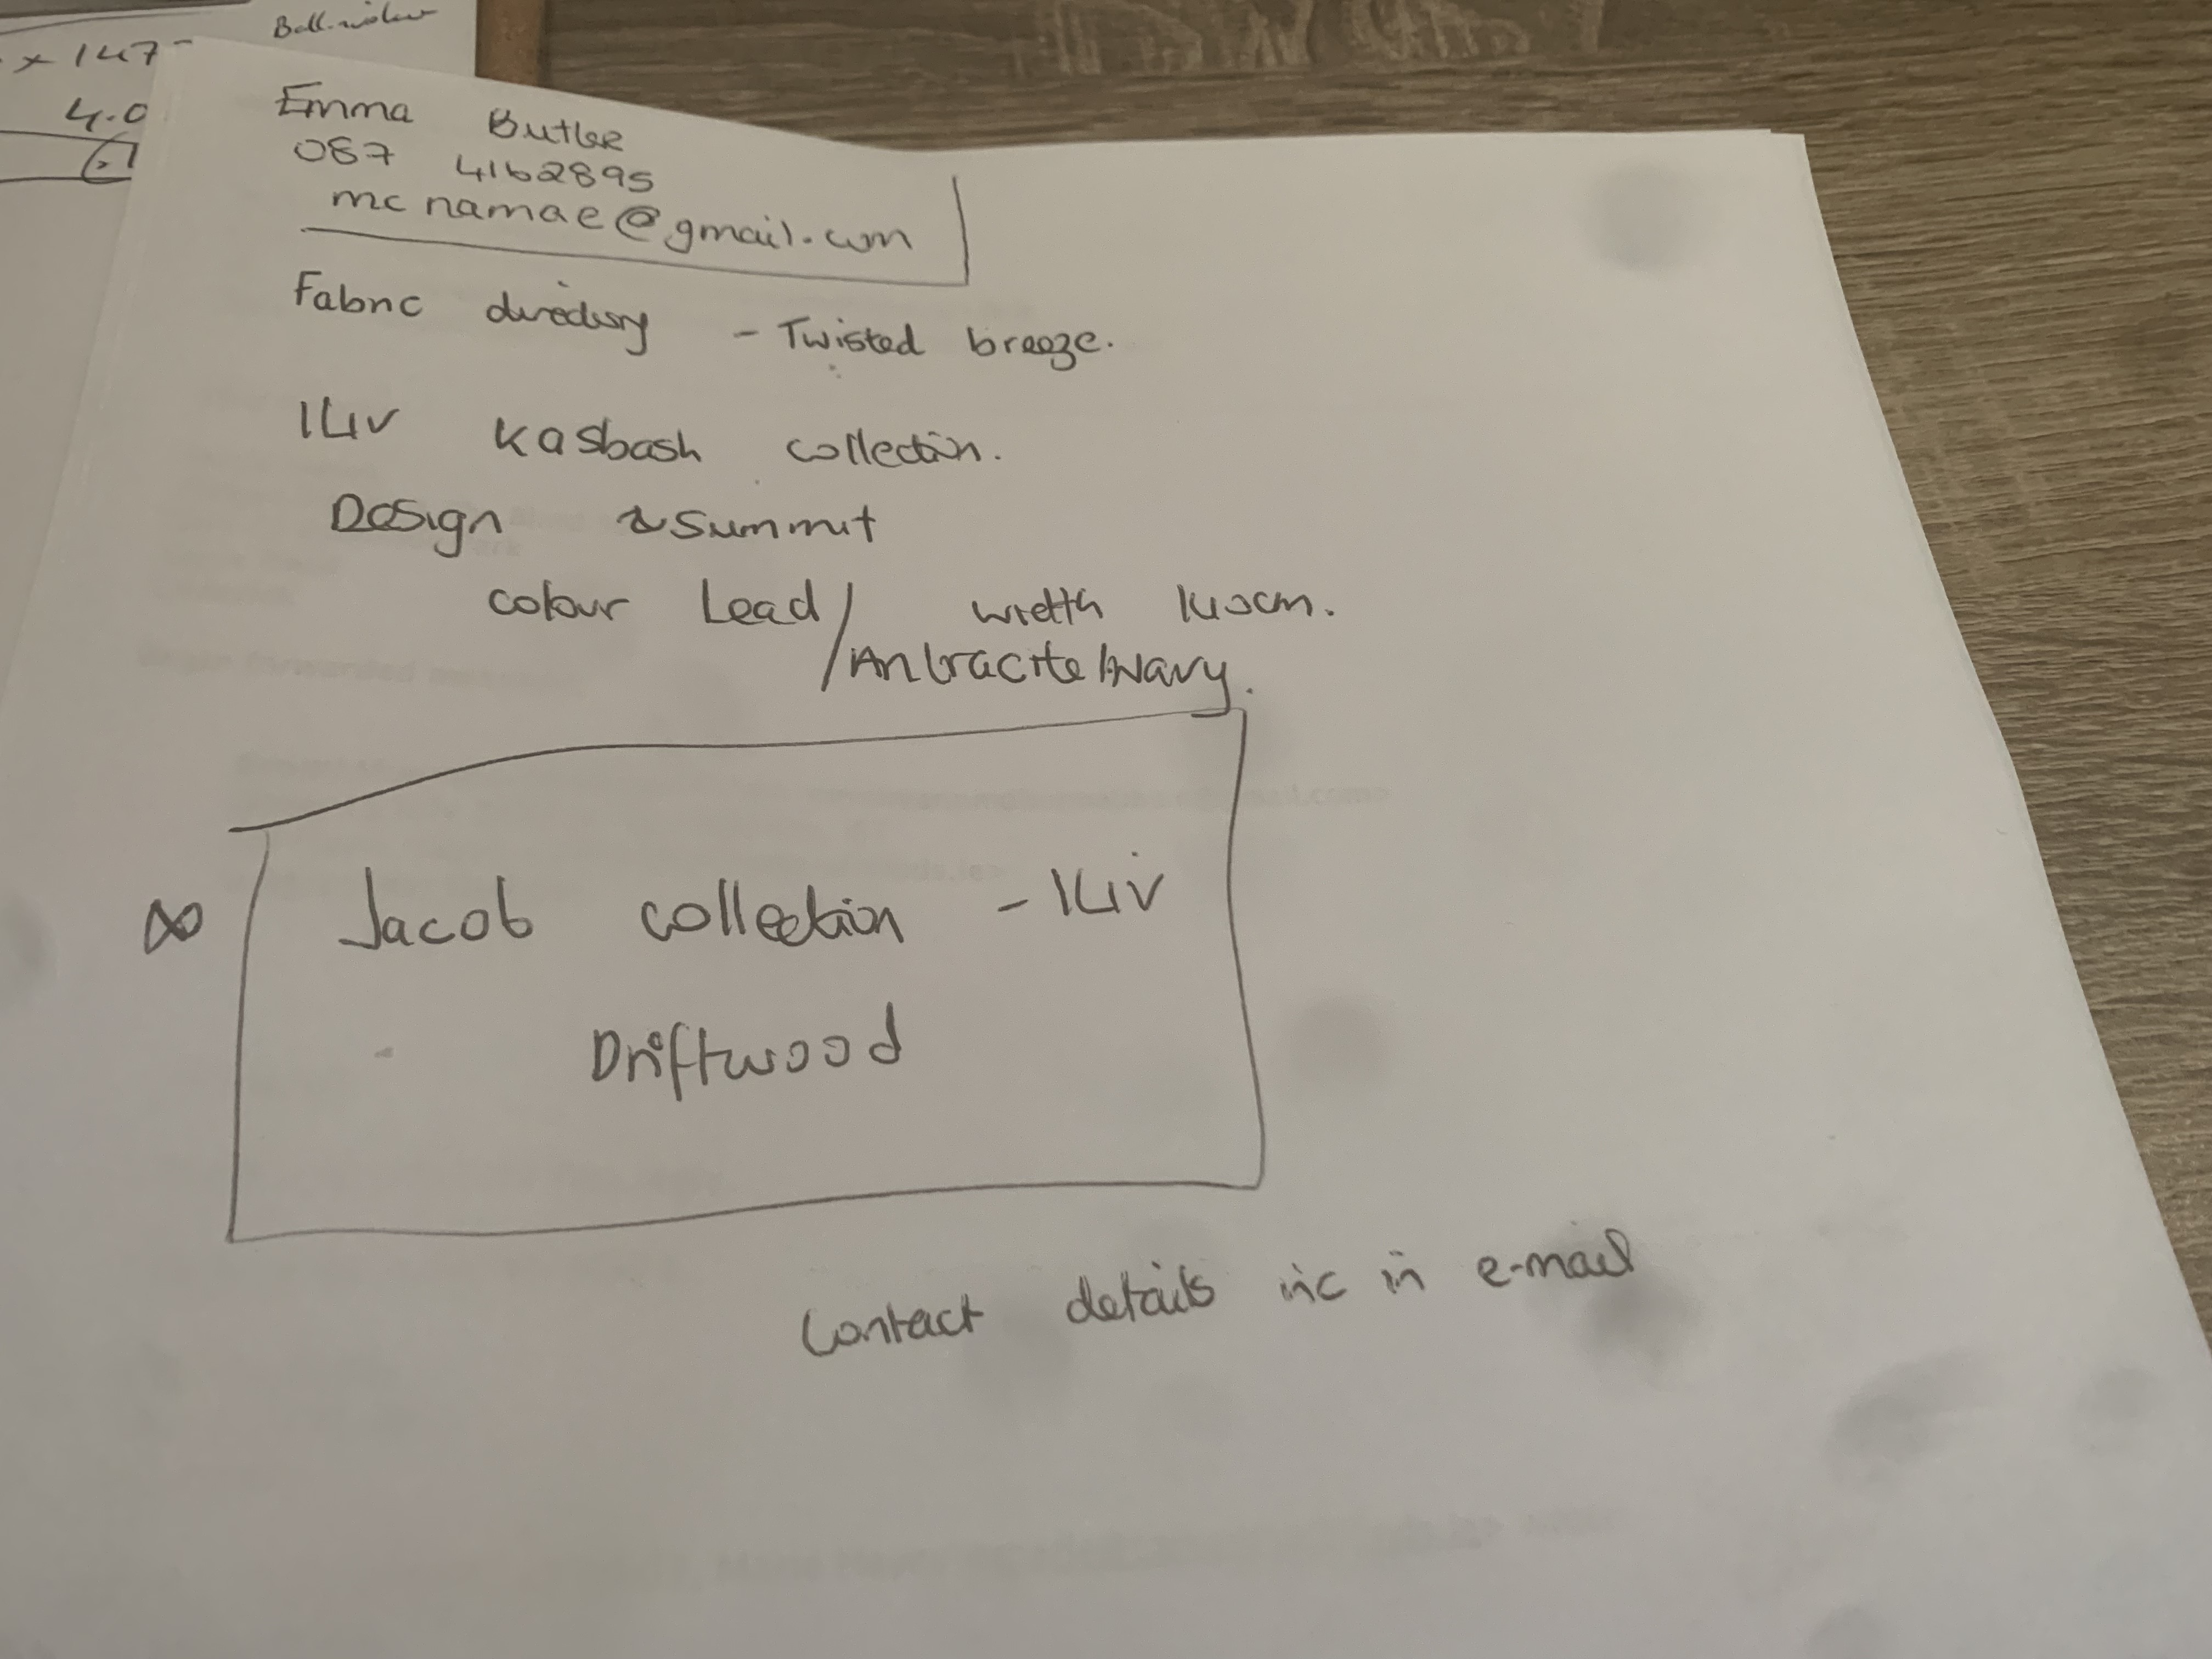 x 147
4.0
Emma Butler
087 4162895
mcnamae@gmail.com
Fabric directory - Twisted breeze.
ILIV Kasbash collection.
Design Summit
colour Lead/ width 140cm.
/Antracite/Navy.
Jacob collection - ILIV
Driftwood
Contact details inc in e-mail